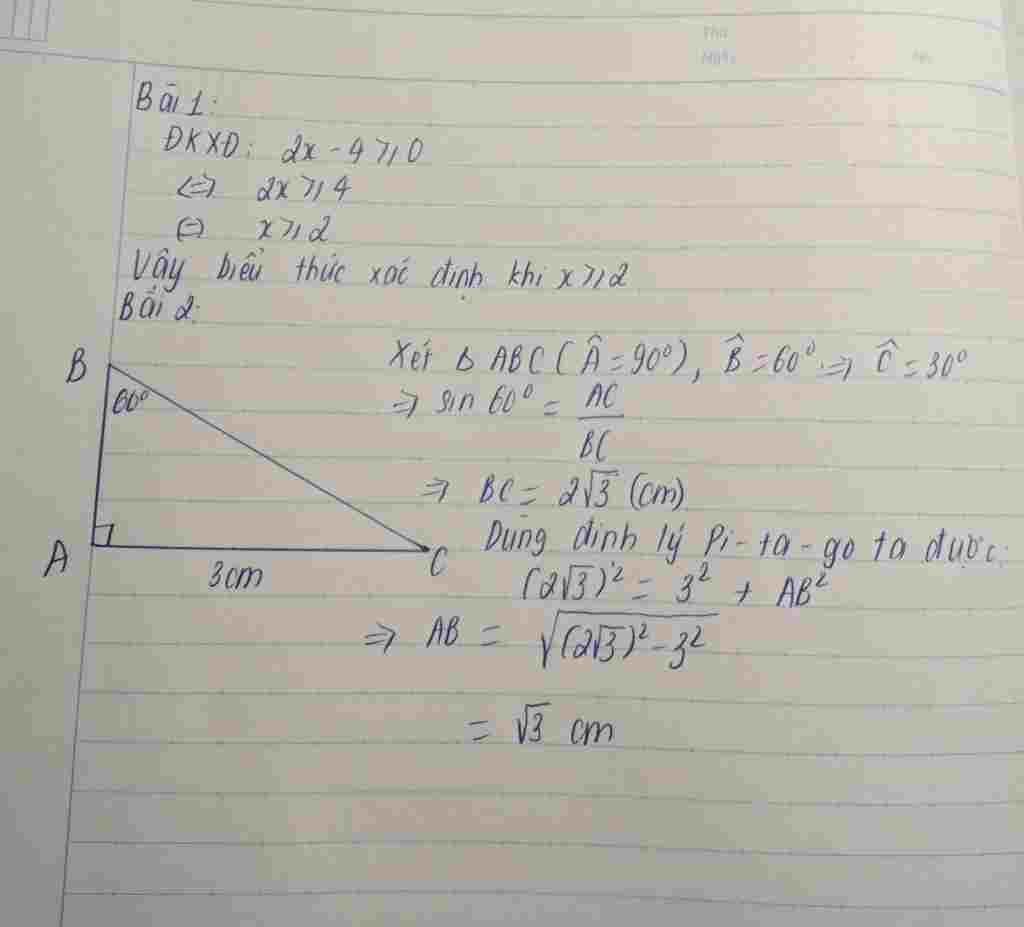 Bài 1:
ĐKXĐ: 2x - 4 ⩾ 0
<=> 2x ⩾ 4
<=> x ⩾ 2
Vậy biểu thức xác định khi x ⩾ 2
Bài 2:
B
60°
A
3cm
C
Xét Δ ABC (Â = 90°), B̂ = 60° => Ĉ = 30°
=> sin 60° = AC/BC
=> BC = 2√3 (cm)
Dụng định lý Pi-ta-go ta được:
(2√3)² = 3² + AB²
=> AB = √((2√3)² - 3²)
= √3 cm